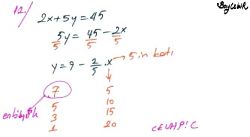 12/
2x+5y=45
5y = 45 - 2x
5 5 5
y = 9 - 2/5 . x → 5 in katı
7
5 5
5 10
3 15
1 20
en büyük
CEVAP: C